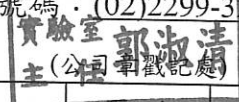 號碼：(02)2299-3
實驗室 郭淑清
主任
(公司章戳記處)